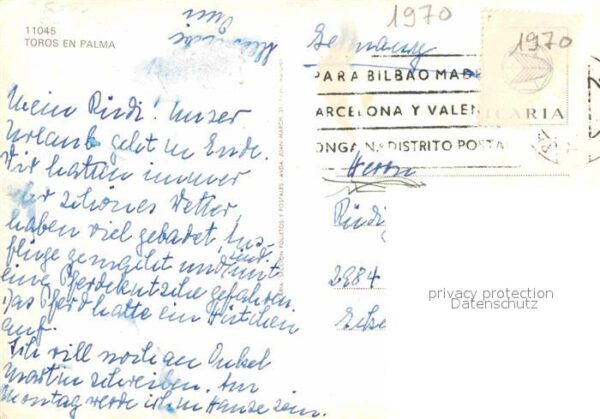 11045
TOROS EN PALMA
1970
1970
Germany
PARA BILBAO MAD
ARCELONA Y VALEN
ONGA Nº DISTRITO POSTA
ICARIA
Mein Rudi! Unser
Urlaub geht zu Ende.
Wir hatten immer
sehr schönes Wetter,
haben viel gebadet, Aus-
flüge gemacht und sind mit
eine Pferdekutsche gefahren
Das Pferd hatte ein Hütchen
auf.
Ich will noch an Onkel
Martin schreiben. Am
Montag werde ich zu Hause sein.
Herrn
Rudi
2984
privacy protection
Datenschutz